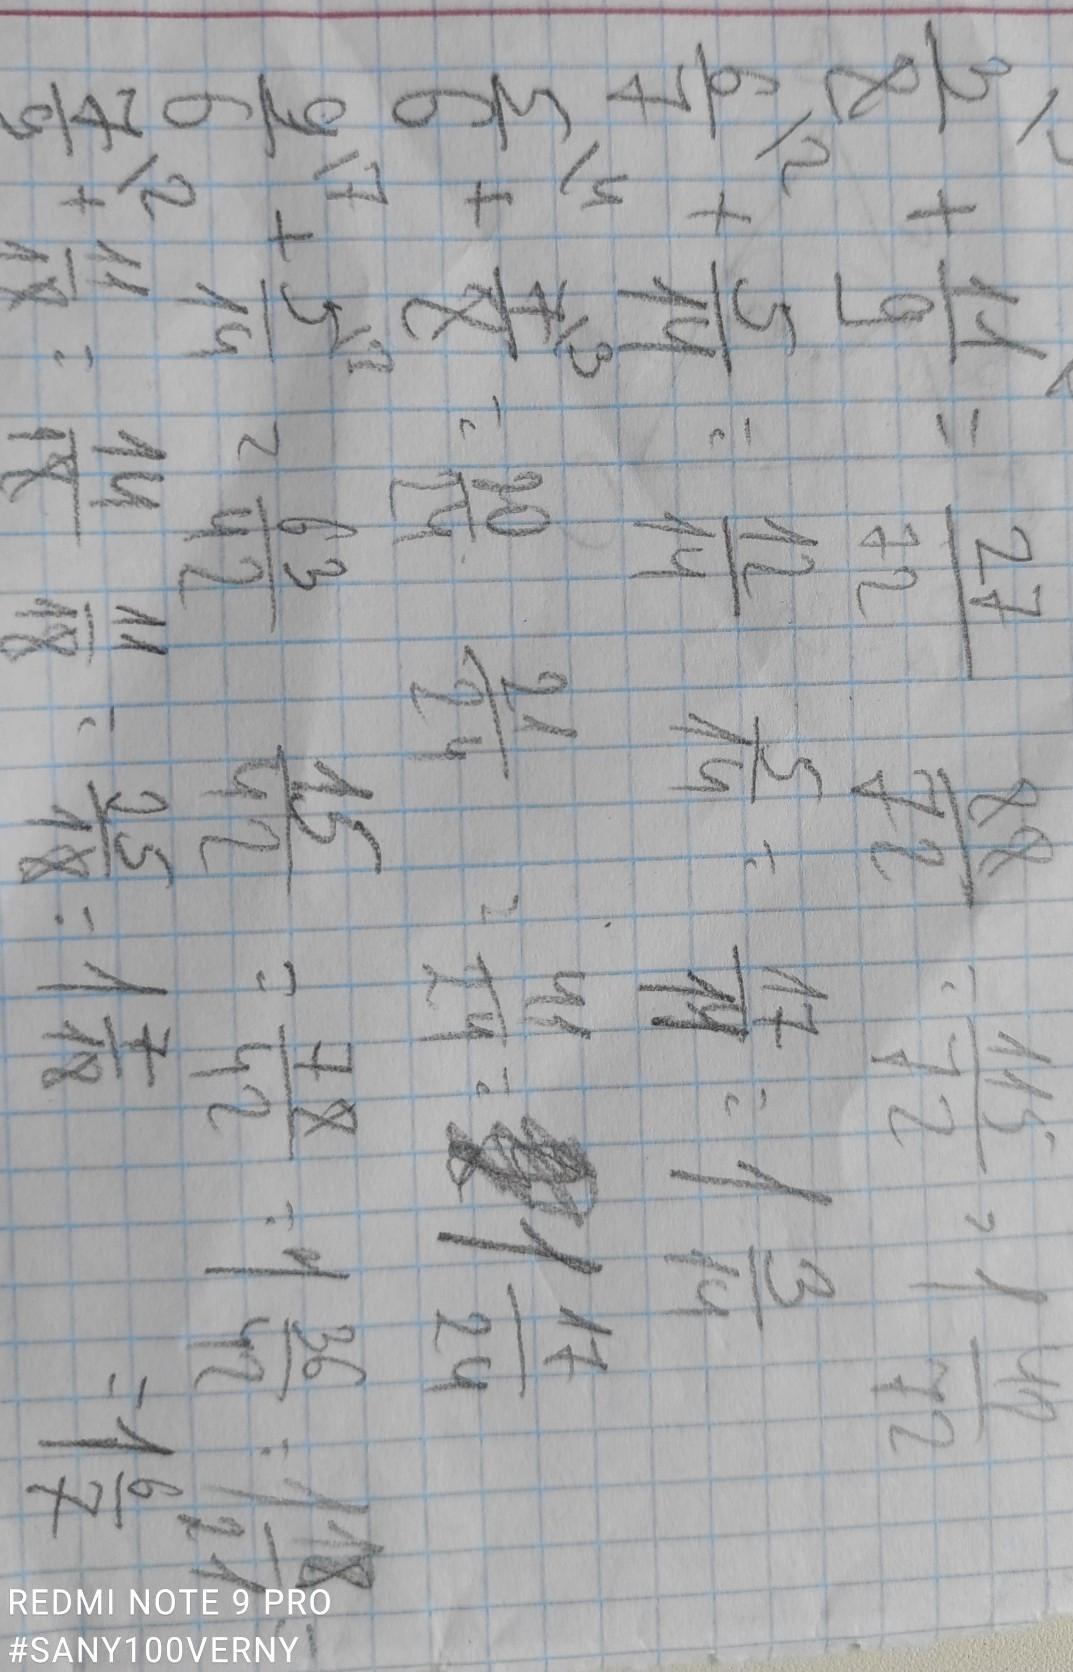 3/8 + 11/9 = 27/72 88/72 = 115/72 = 1 40/72
6/7 /2 + 5/14 = 12/14 5/14 = 17/14 = 1 3/14
5/6 /4 + 7/8 /3 = 20/24 21/24 = 41/24 = 1 17/24
9/6 /7 + 5/14 /3 = 63/42 15/42 = 78/42 = 1 36/42 = 1 18/21 =
= 1 6/7
7/9 /2 + 11/18 = 14/18 11/18 = 25/18 = 1 7/18
REDMI NOTE 9 PRO
#SANY100VERNY